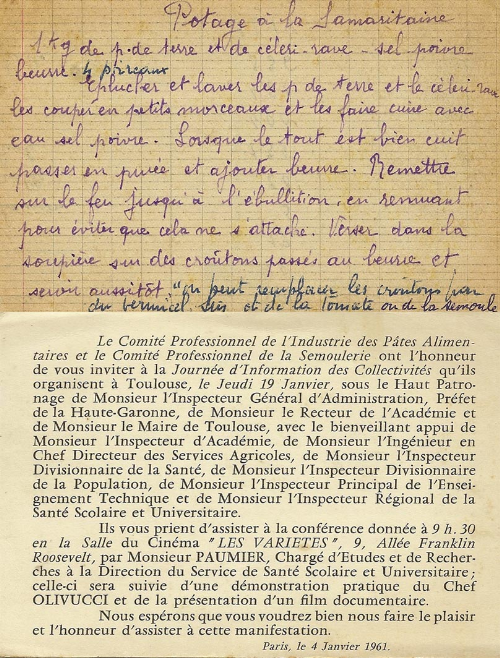 Potage à la Samaritaine
1 kg de p. de terre et de céleri-rave - sel poivre
beurre. 4 poireaux
Eplucher et laver les p de terre et le céleri-rave
les couper en petits morceaux et les faire cuire avec
eau sel poivre. Lorsque le tout est bien cuit
passer en purée et ajouter beurre. Remettre
sur le feu jusqu'à l'ébullition, en remuant
pour éviter que cela ne s'attache. Verser dans la
soupière sur des croûtons passés au beurre et
servir aussitôt. "on peut remplacer les croûtons par
du vermicel et de la tomate ou de la semoule
Le Comité Professionnel de l'Industrie des Pâtes Alimen-
taires et le Comité Professionnel de la Semoulerie ont l'honneur
de vous inviter à la Journée d'Information des Collectivités qu'ils
organisent à Toulouse, le Jeudi 19 Janvier, sous le Haut Patro-
nage de Monsieur l'Inspecteur Général d'Administration, Préfet
de la Haute-Garonne, de Monsieur le Recteur de l'Académie et
de Monsieur le Maire de Toulouse, avec le bienveillant appui de
Monsieur l'Inspecteur d'Académie, de Monsieur l'Ingénieur en
Chef Directeur des Services Agricoles, de Monsieur l'Inspecteur
Divisionnaire de la Santé, de Monsieur l'Inspecteur Divisionnaire
de la Population, de Monsieur l'Inspecteur Principal de l'Ensei-
gnement Technique et de Monsieur l'Inspecteur Régional de la
Santé Scolaire et Universitaire.
Ils vous prient d'assister à la conférence donnée à 9 h. 30
en la Salle du Cinéma "LES VARIETES", 9, Allée Franklin
Roosevelt, par Monsieur PAUMIER, Chargé d'Etudes et de Recher-
ches à la Direction du Service de Santé Scolaire et Universitaire ;
celle-ci sera suivie d'une démonstration pratique du Chef
OLIVUCCI et de la présentation d'un film documentaire.
Nous espérons que vous voudrez bien nous faire le plaisir
et l'honneur d'assister à cette manifestation.
Paris, le 4 Janvier 1961.